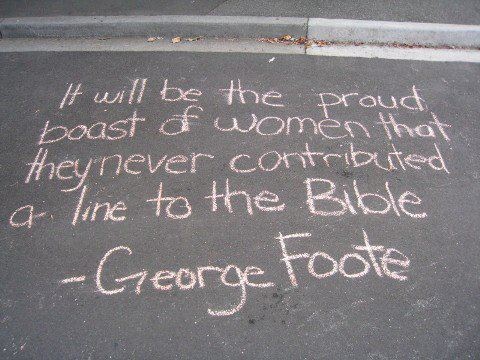 It will be the proud
boast of women that
they never contributed
a line to the Bible
- George Foote